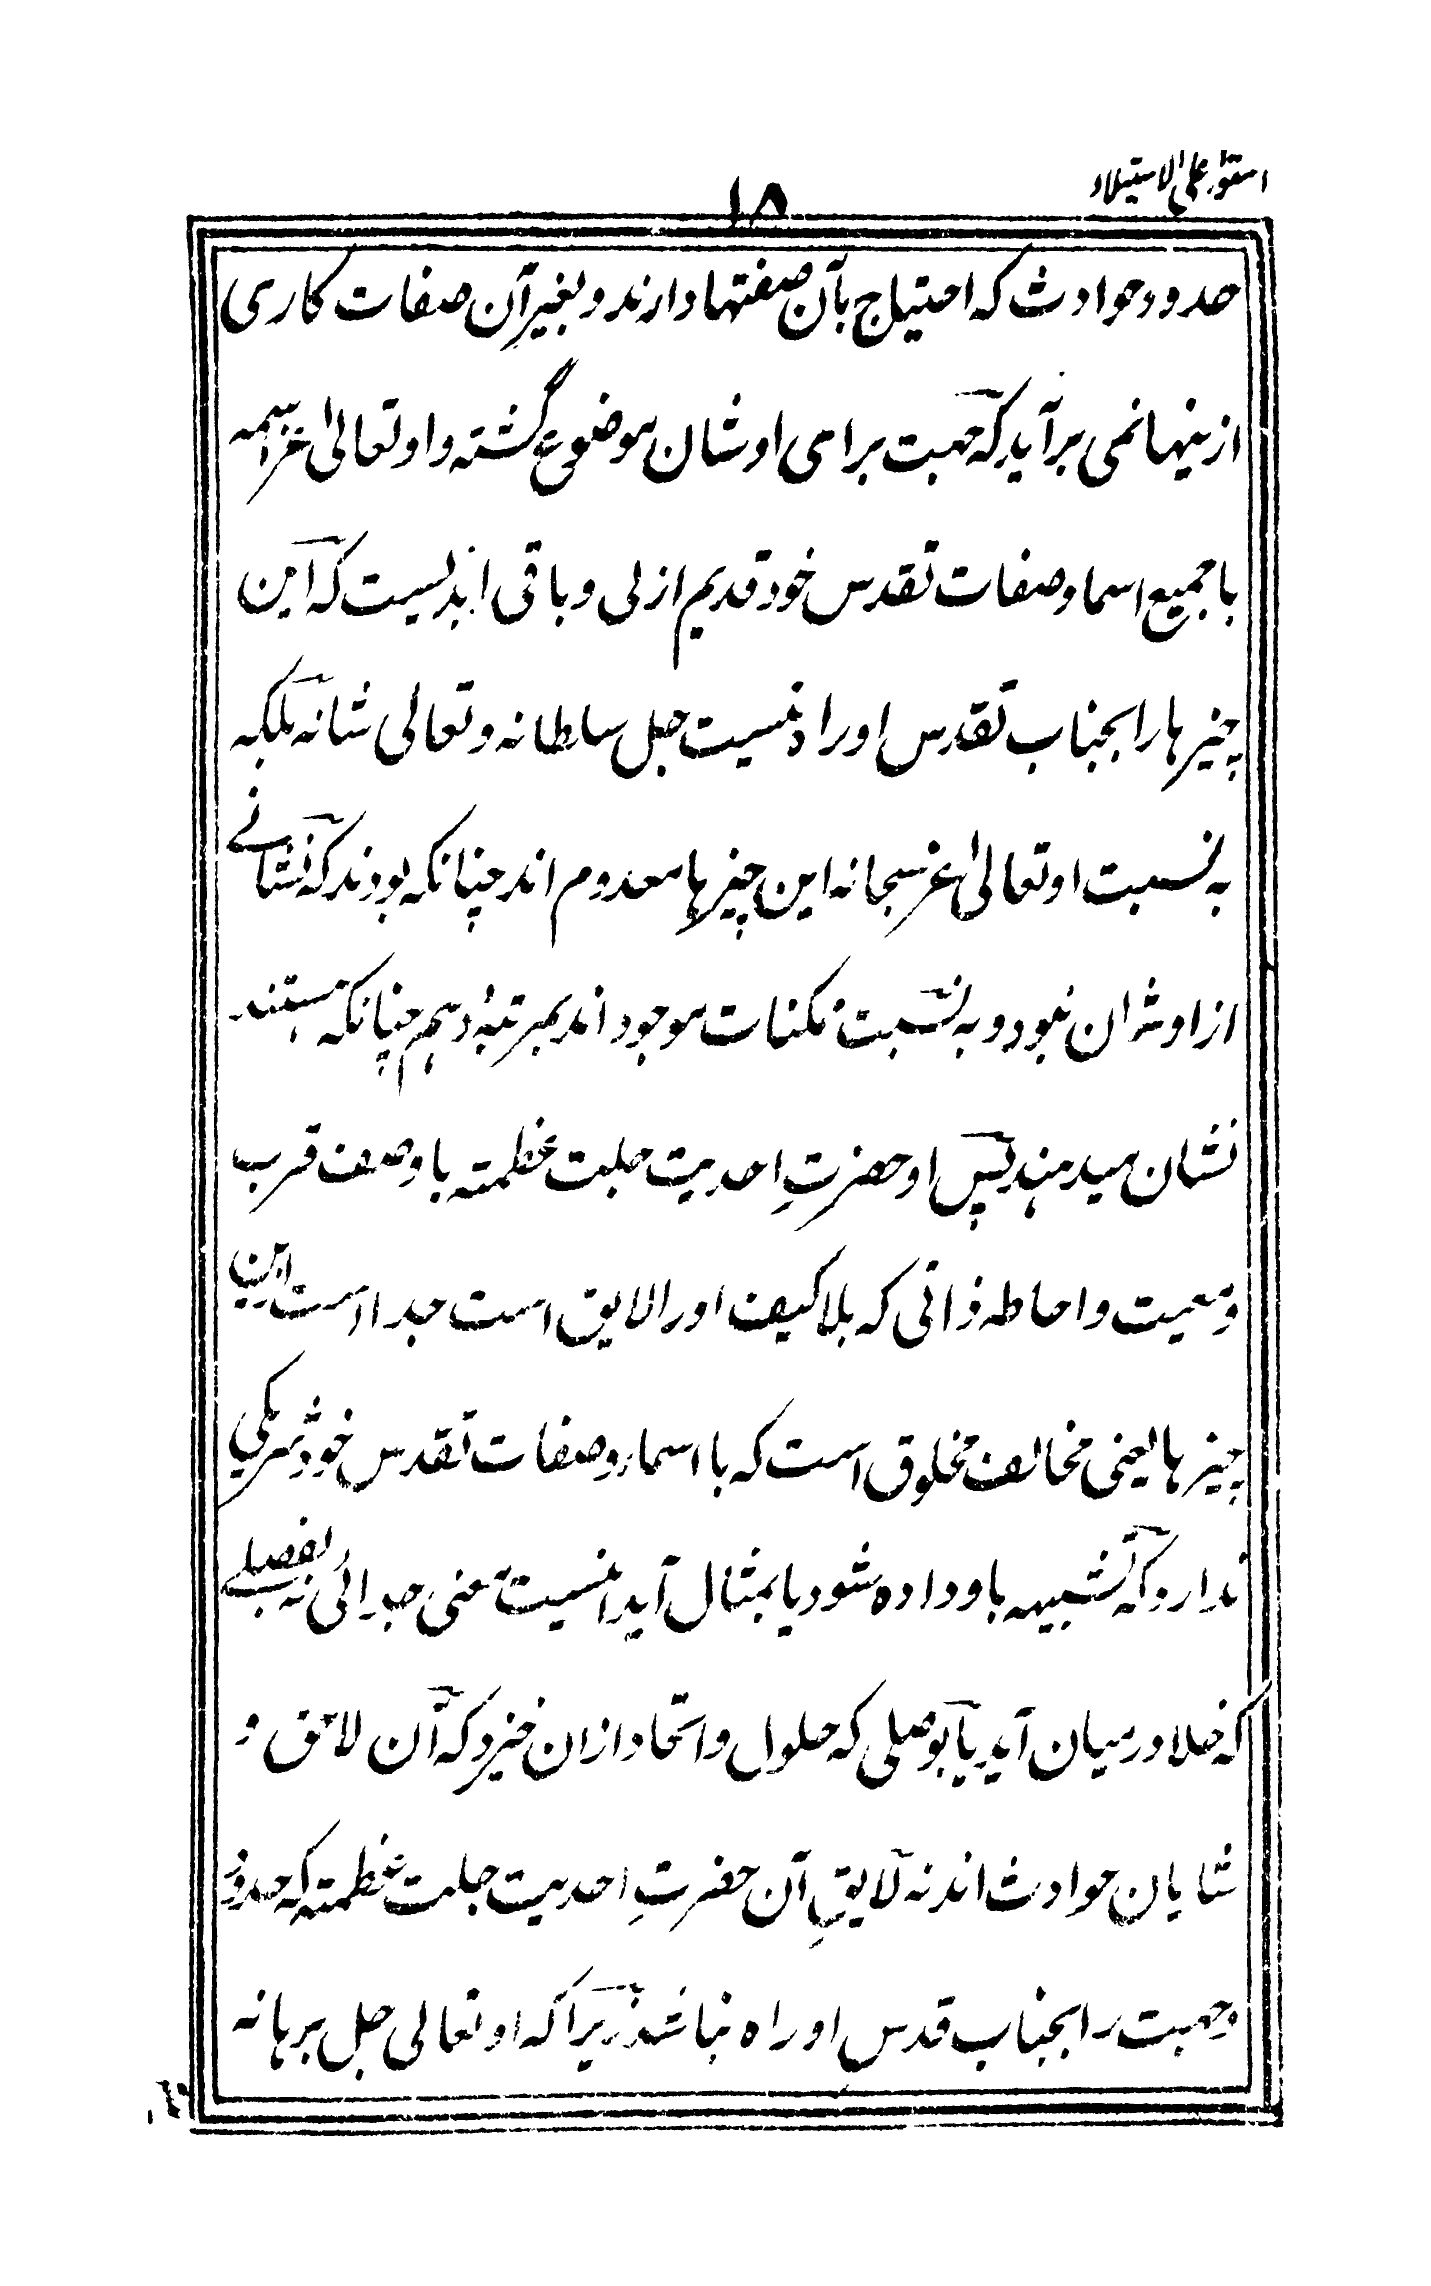 استواء علی الاستیلاء
۱۸
حدود حوادث که احتیاج بآن صفتها دارند و بغیر آن صفات کاری
ازینها نمی برآید که جهت برای اوشان موضوع گشته و او تعالیٰ عز اسمه
با جمیع اسما و صفات تقدس خود قدیم ازلی و باقی ابدیست که این
چیزها را بجناب تقدس او راه نیست جل سلطانه و تعالی شانه بلکه
به نسبت او تعالیٰ عز سبحانه این چیزها معدوم اند چنانکه بودند که نشانے
از اوشان نبود و به نسبت ممکنات موجود اند بمرتبۂ وهم چنانکه هستند
نشان میدهند پس او حضرتِ احدیت جلت عظمته با وصف قرب
و معیت و احاطه ذاتی که بلا کیف او را لایق است جدا است ازین
چیزها یعنی مخالف مخلوق است که با اسماء و صفات تقدس خود شریکی
ندارد که تشبیه باو داده شود یا بمثال آید اینست معنی جدائی نه بفصلے
که خلا درمیان آید یا بوصلی که حلول و اتحاد ازان خیزد که آن لائق و
شایان حوادث اند نه لایقِ آن حضرتِ احدیت جلت عظمته که حدود
و جهت را بجناب قدس او راه نباشد زیرا که او تعالی جل برهانه